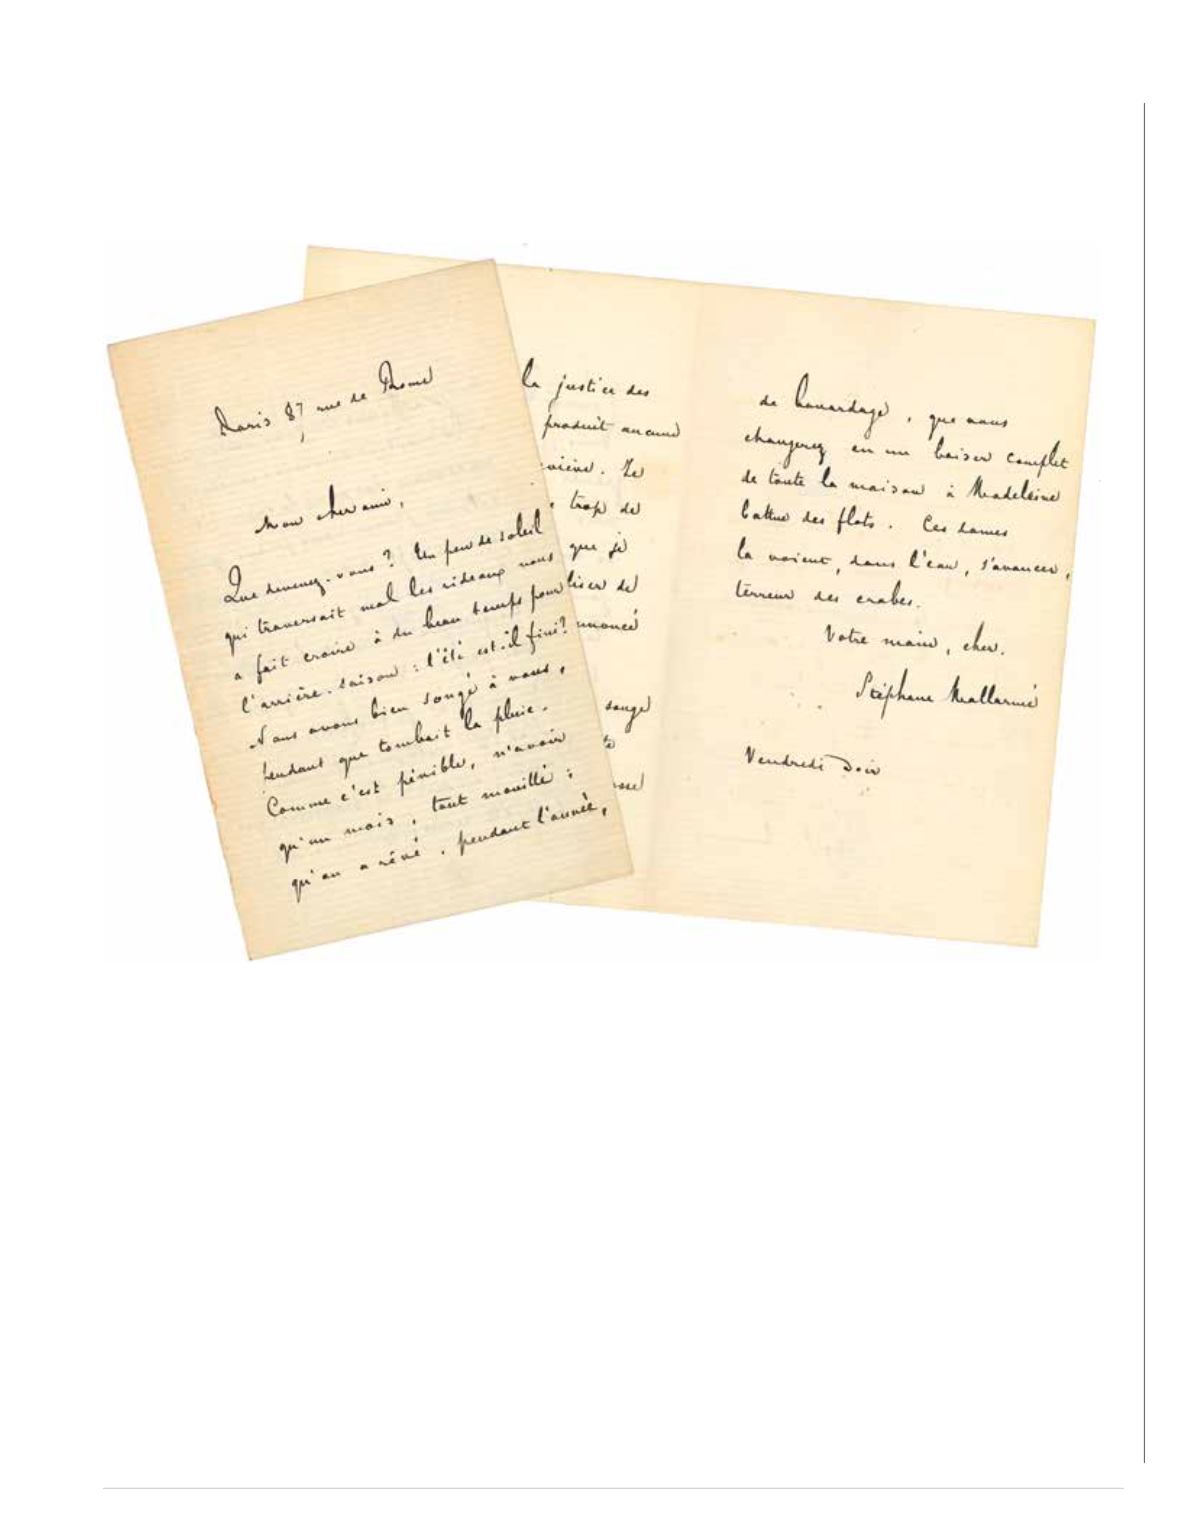 Paris 87, rue de Rome
Mon cher ami,
Que devenez-vous ? Un peu de soleil
qui traversait mal les rideaux nous
a fait croire à du beau temps pour
l'arrière-saison : l'été est-il fini ?
Nous avons bien songé à vous,
pendant que tombait la pluie.
Comme c'est pénible, n'avoir
qu'un mois, tout mouillé ;
qu'on a rêvé, pendant l'année,
la justice des
produit aucune
. Le
trop de
que je
de
songe
de bavardage, que vous
changerez en un baiser complet
de toute la maison à Madeleine
battue des flots. Ces dames
la voient, dans l'eau, s'avancer,
terreur des crabes.
Votre main, cher.
Stéphane Mallarmé
Vendredi soir